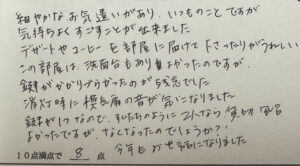 細やかなお気遣いがあり、いつものことですが
気持ちよくすごすことが出来ました
デザートやコーヒーを部屋に届けて下さったりがうれしい
この部屋は、洗面台もありよかったのですが、
鍵がかかりづらかったのが残念でした
消灯時に換気扇の音が気になりました
鍵が1つなので、私たちのように2人なら
よかったですが、なくなったのでしょうか?
10点満点で 8 点 今年もお世話になりました